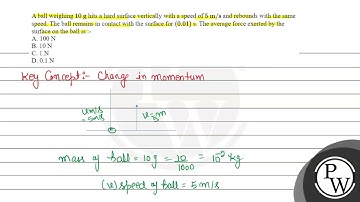 A ball weighing 10 g hits a hard surface vertically with a speed of 5 m/s and rebounds with the same
speed. The ball remains in contact with the surface for (0.01) s. The average force exerted by the
surface on the ball is :-
A. 100 N
B. 10 N
C. 1 N
D. 0.1 N
Key Concept:- Change in momentum
u m/s
= 5m/s
v = 5 m
mass of ball = 10g = 10/1000 = 10⁻² kg
(v) speed of ball = 5 m/s
PW